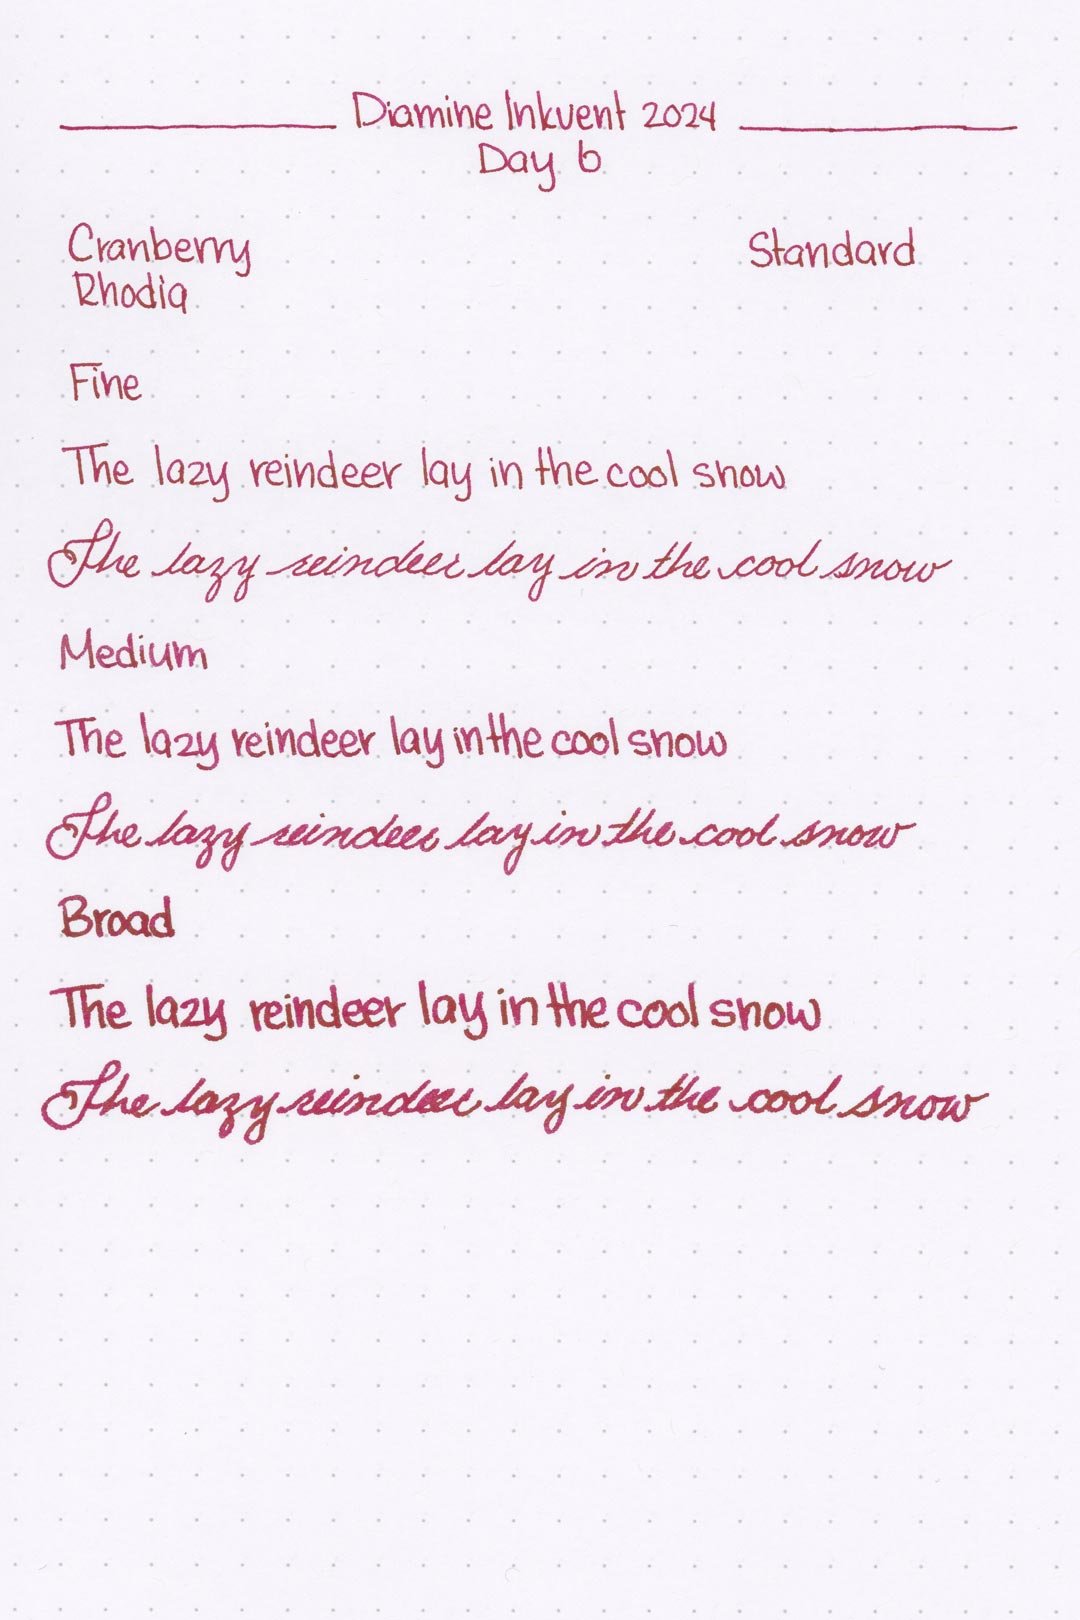 Diamine Inkvent 2024
Day 6
Cranberry Standard
Rhodia
Fine
The lazy reindeer lay in the cool snow
The lazy reindeer lay in the cool snow
Medium
The lazy reindeer lay in the cool snow
The lazy reindeer lay in the cool snow
Broad
The lazy reindeer lay in the cool snow
The lazy reindeer lay in the cool snow